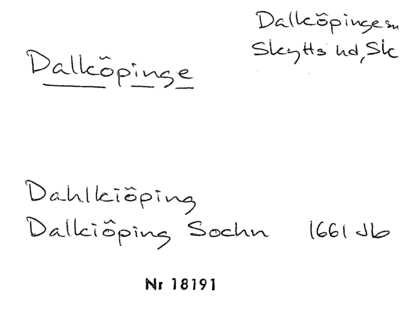 Dalköpinge sn
Skytts hd, Sk
Dalköpinge
Dahlkiöping
Dalkiöping Sochn 1661 Jb
Nr 18191